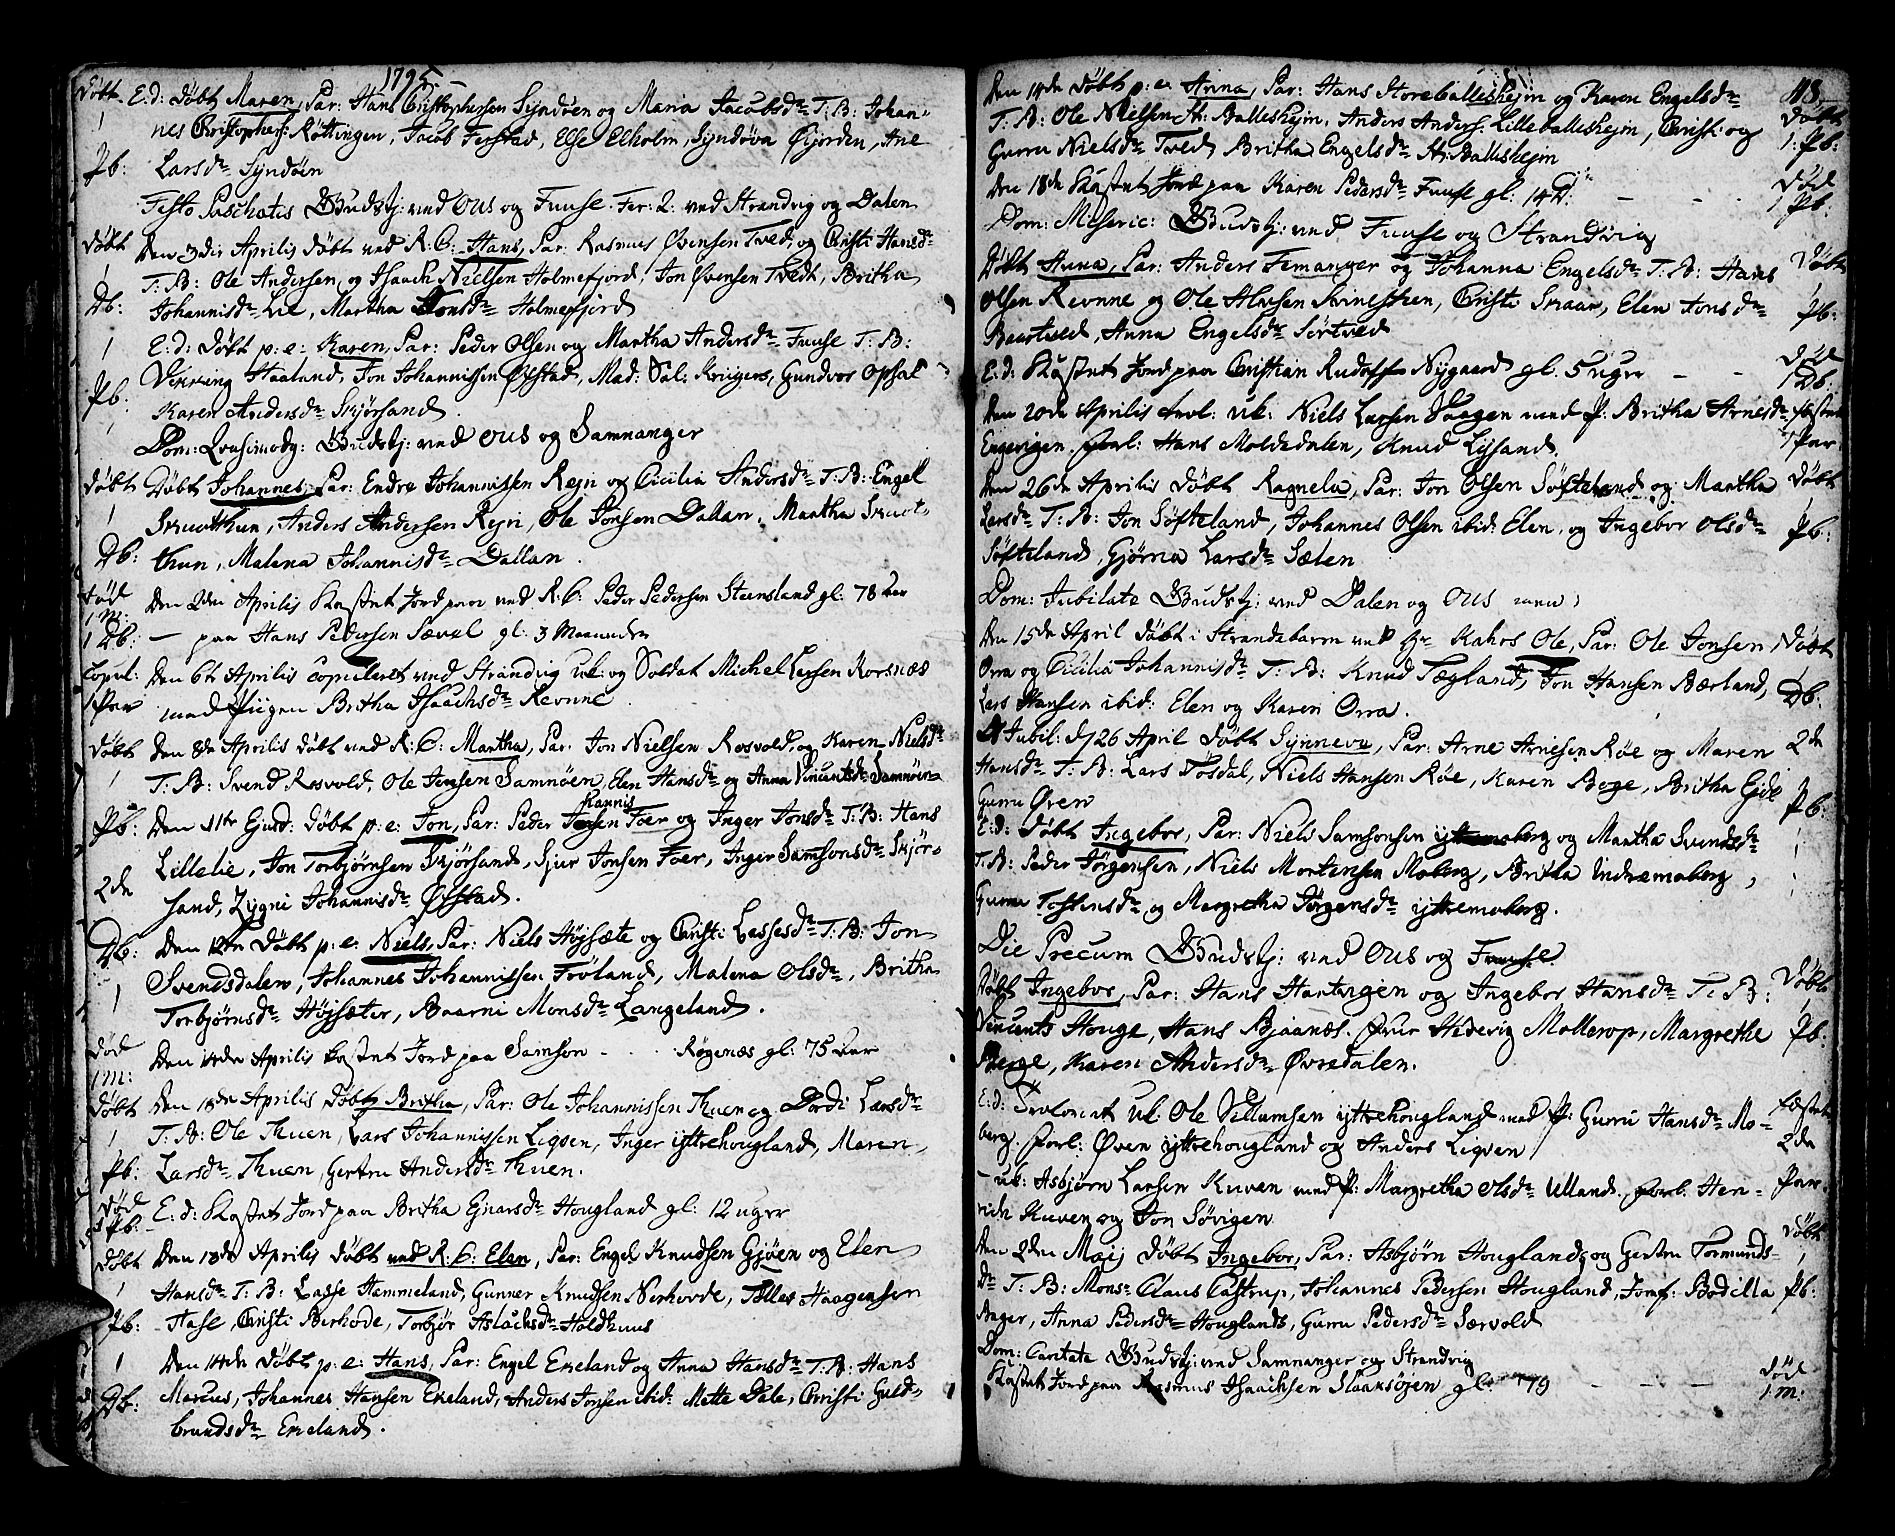 1795
Døbt E: d: Døbt Maren, Par: Hans Christophersen Syndøen og Maria Jacobsdr T: B: Johan-
1 nes Christophers: Røttingen, Jacob Ferstad, Else Elholm, Syndøva Øfjorden, Ane
Pb: Larsdr Syndøen
Festo Paschatis Gudstj: ved Ous og Fuuse. Fer: 2. ved Strandvig og Dalen
Døbt Den 3die Aprilis døbt ved R: C: Hans, Par: Rasmus Øvensen Tved, og Christi Hansdr
1 T: B: Ole Andersen og Isaach Nielsen Holmefjord, Jon Øvensen Tvedt, Britha
Db: Johannisdr Lie, Martha Jonsdr Holmefjord
1 E: d: Døbt p: e: Karen, Par: Peder Olsen og Martha Andersdr Fuuse T: B:
Pb: Haaland, Jon Johannissen Øvstad, Mad: Sal: Krügers, Gundvor Opsal
Karen Andersdr Skjørsand
Dom: Qvasimodg: Gudstj: ved Ous og Samnanger
Døbt Døbt Johannes, Par: Endre Johannissen Rejn og Cicilia Andersdr T: B: Engel
1 Skuotthun, Anders Andersen Rejn, Ole Jonsen Dallan, Martha Skuot-
Db: thun, Malena Johannisdr Dallan.
død Den 2den Aprilis Kastet Jord paa ved R: C: Peder Pedersen Steensland gl. 78 aar
1 m:
1 Db: — paa Hans Pedersen Sævel gl: 3 Maaneder
Copul: Den 6te Aprilis Copuleret ved Strandvig uk: og Soldat Michel Larsen Korsnæs
1 Par med Pigen Britha Isaachsdr Revnne
Døbt Den 8de Aprilis døbt ved R: C: Martha, Par: Jon Nielsen Rosvold, og Karen Nielsdr
1 T: B: Svend Rosvold, Ole Jensen Samnøen, Elen Hansdr og Anna Vincentsdr Samnøen
Pb: Den 11te Ejusd: døbt p: e: Jon, Par: Peder Johannis Foer og Inger Jonsdr T: B: Hans
Lillelie, Jon Torbjørnsen Skjørsand, Sjur Jonsen Foer, Inger Samsonsdr Skjør-
2de sand, Zygni Johannisdr Øvstad.
Db: Den 12te Døbt p: e: Niels, Par: Niels Høysæte og Christi Lassesdr T: B: Jon
1 Svendsdalen, Johannes Johannissen Frøland, Malena Olsdr, Britha
Torbjørnsdr Høysæter, Baarni Monsdr Langeland.
død Den 14de Aprilis Kastet Jord paa Samson - - - Røgenæs gl: 75 aar
1 m:
Døbt Den 18de Aprilis døbt Britha, Par: Ole Johannissen Thuen og Dordi Larsdr
1 T: B: Ole Thuen, Lars Johannissen Liqsen, Inger yttrehougland, Maren
Pb: Larsdr Thuen, Gertru Andersdr Thuen.
død E: d: Kastet Jord paa Britha Gnarsdr Hougland gl: 12 uger
1 Pb:
Døbt Den 13de Aprilis døbt ved R: C: Elen, Par: Engel Knudsen Gjøen og Elen
1 Hansdr T: B: Lasse Hemmeland, Gunner Knudsen Nerhovde, Tolles Haagensen
Pb: Hase, Christi Berhode, Torbjør Aslachsdr Holdhuus
1 Den 14de døbt p: e: Hans, Par: Engel Ekeland og Anna Hansdr T: B: Hans
Db: Marcus, Johannes Hansen Ekeland, Anders Jonsen ibid: Mette Dale, Christi Guld-
brandsdr Ekeland.
113
Den 14de døbt p: e: Anna, Par: Hans Storeballeshejm og Karen Engelsdr Døbt
T: B: Ole Nielsen St: Balleshejm, Anders Anders: Lilleballeshejm, Christi og 1
Gurru Nielsdr Tved, Britha Engelsdr St: Balleshejm Pb:
Den 18de Kastet Jord paa Karen Pedersdr Fuuse gl. 14 D: - - - død
1 Pb:
Dom: Miseric: Gudstj: ved Fuuse og Strandvig
Døbt Anna, Par: Anders Femanger og Johanna Engelsdr T: B: Hans Døbt
Olsen Revnne og Ole Alvsen Svinesteen, Christi Skaar, Elen Jonsdr 1
Baartved, Anna Engelsdr Sørtved Pb:
E: d: Kastet Jord paa Christian Rudolff Nygaard gl. 5 uger - - død
1 Db:
Den 20de Aprilis trol: uk: Niels Larsen Waagen med P: Britha Arnesdr fæstet
Engevigen. forl: Hans Moldedalen, Knud Lysand. 1 Par
Den 26de Aprilis Døbt Ragnela, Par: Jon Olsen Søfteland og Martha Døbt
Larsdr T: B: Jon Søfteland, Johannes Olsen ibid: Elen, og Ingebor Olsdr 1
Søfteland, Gjørna Larsdr Sælen Pb:
Dom: Jubilate Gudstj: ved Dalen og Ous
Den 15de April døbt i Strandebarm ved Hr Kahrs Ole, Par: Ole Jonsen Døbt
Orra og Cicilia Johannisdr T: B: Knud Tægland, Jon Hansen Bærland, 1
Lars Hansen ibid: Elen og Karen Orra. Db:
Jubil: d/26 April døbt Synneva, Par: Arne Arnesen Røe og Maren 2de
Hansdr T: B: Lars Tosdal, Niels Hansen Røe, Karen Boge, Britha Ejde
Gurru Øren Pb:
E: d: Døbt Ingebor, Par: Niels Samsonsen yttremoberg og Martha Svendsdr
T: B: Peder Jørgensen, Niels Mortensen Moberg, Britha Indremoberg,
Gurru Tostensdr og Margretha Jørgensdr yttremoberg.
Die Precum Gudstj: ved Ous og Fuuse.
Døbt Ingebor, Par: Hans Hartvigen og Ingebor Hansdr T: B: Døbt
Vincents Houge, Hans Bjaanæs, Hedevig Mollerop, Margrethe 1
Berge, Karen Andersdr Øvredalen. Pb:
E: d: Trolovet uk Ole Villumsen yttrehougland med P: Gurru Hansdr Mo- fæstet
berg. forl: Øven yttrehougland og Anders Liqsen 2de
- uk: Asbjørn Larsen Kuven med P: Margretha Olsdr Ulland, forl: Hen- Par
rich Kuven og Jon Søvigen
Den 2den Maij døbt Ingebor, Par: Asbjørn Hougland, og Gertru Tormunds- Døbt
dr T: B: Monsr Claus Castrup, Johannes Pedersen Hougland, Jomf: Bodilla 1
Anger, Anna Pedersdr Hougland, Gurru Pedersdr Særvold Pb:
Dom: Cantate Gudstj: ved Samnanger og Strandvig
Kastet Jord paa Rasmus Isaachsen Slaaksøjen gl: 79 - - - død
1 m: